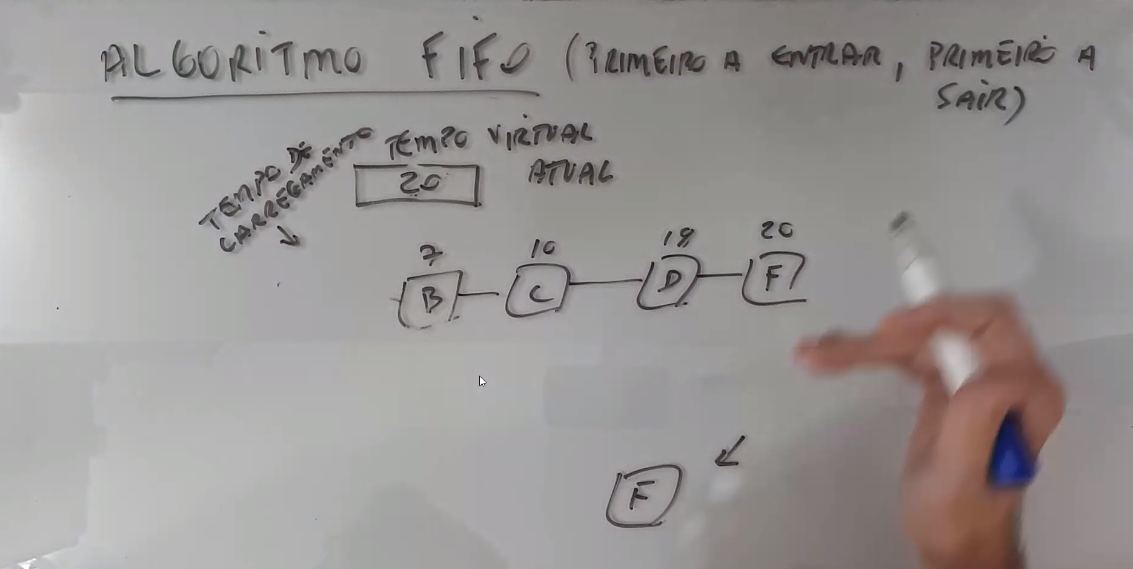 ALGORITMO FIFO (PRIMEIRO A ENTRAR, PRIMEIRO A
SAIR)
TEMPO DE
CARREGAMENTO
TEMPO VIRTUAL
ATUAL
20
7 10 19 20
B C D F
F